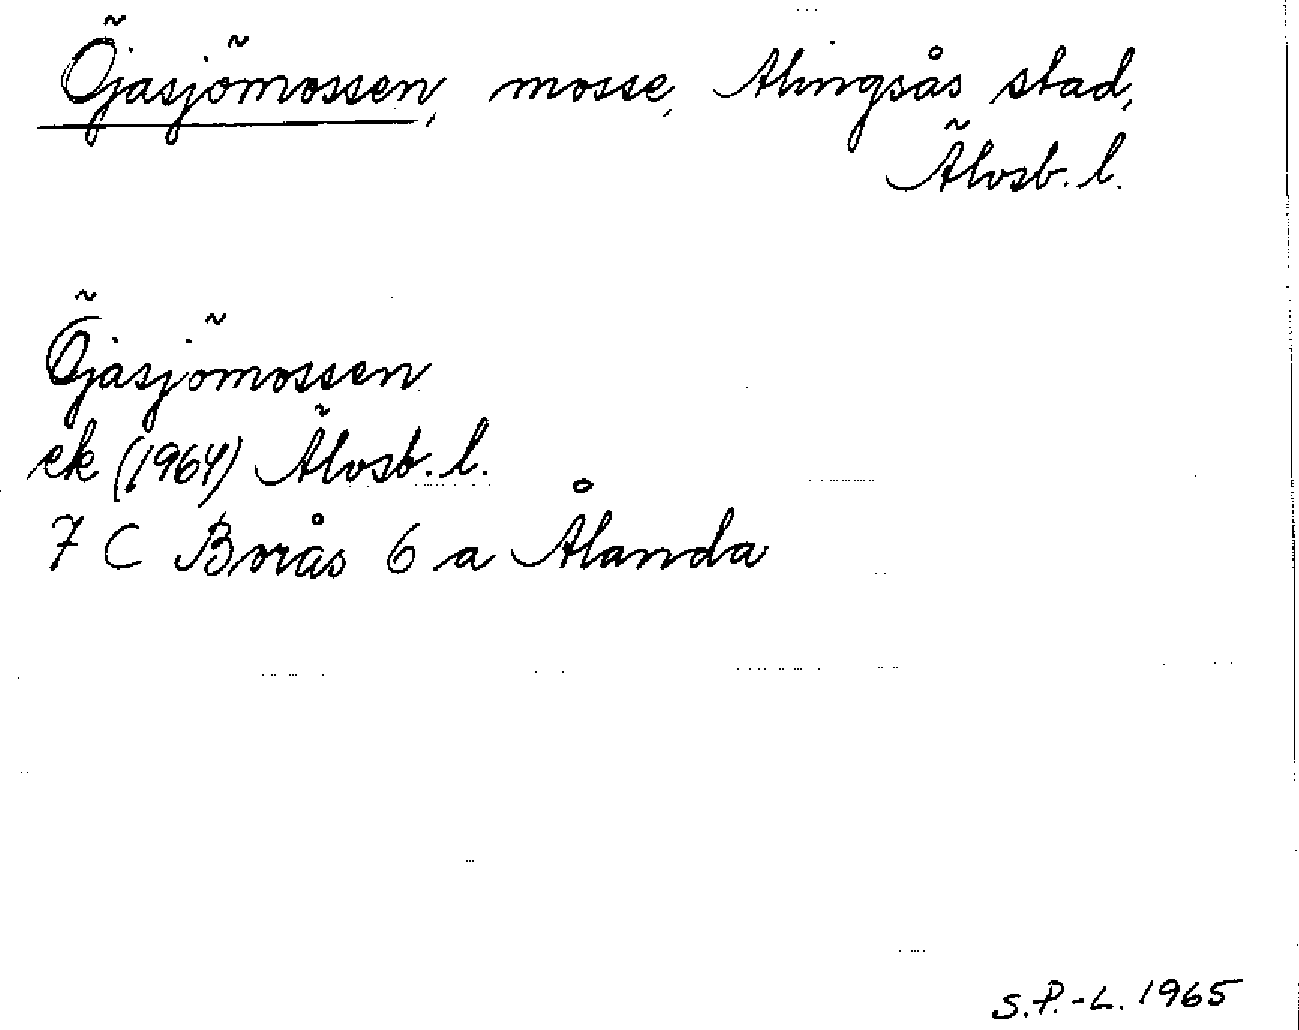 Öjasjömossen, mosse, Alingsås stad,
Älvsb. l.
Öjasjömossen
ek (1964) Älvsb. l.
7 C Borås 6 a Ålanda
S.P.-L. 1965